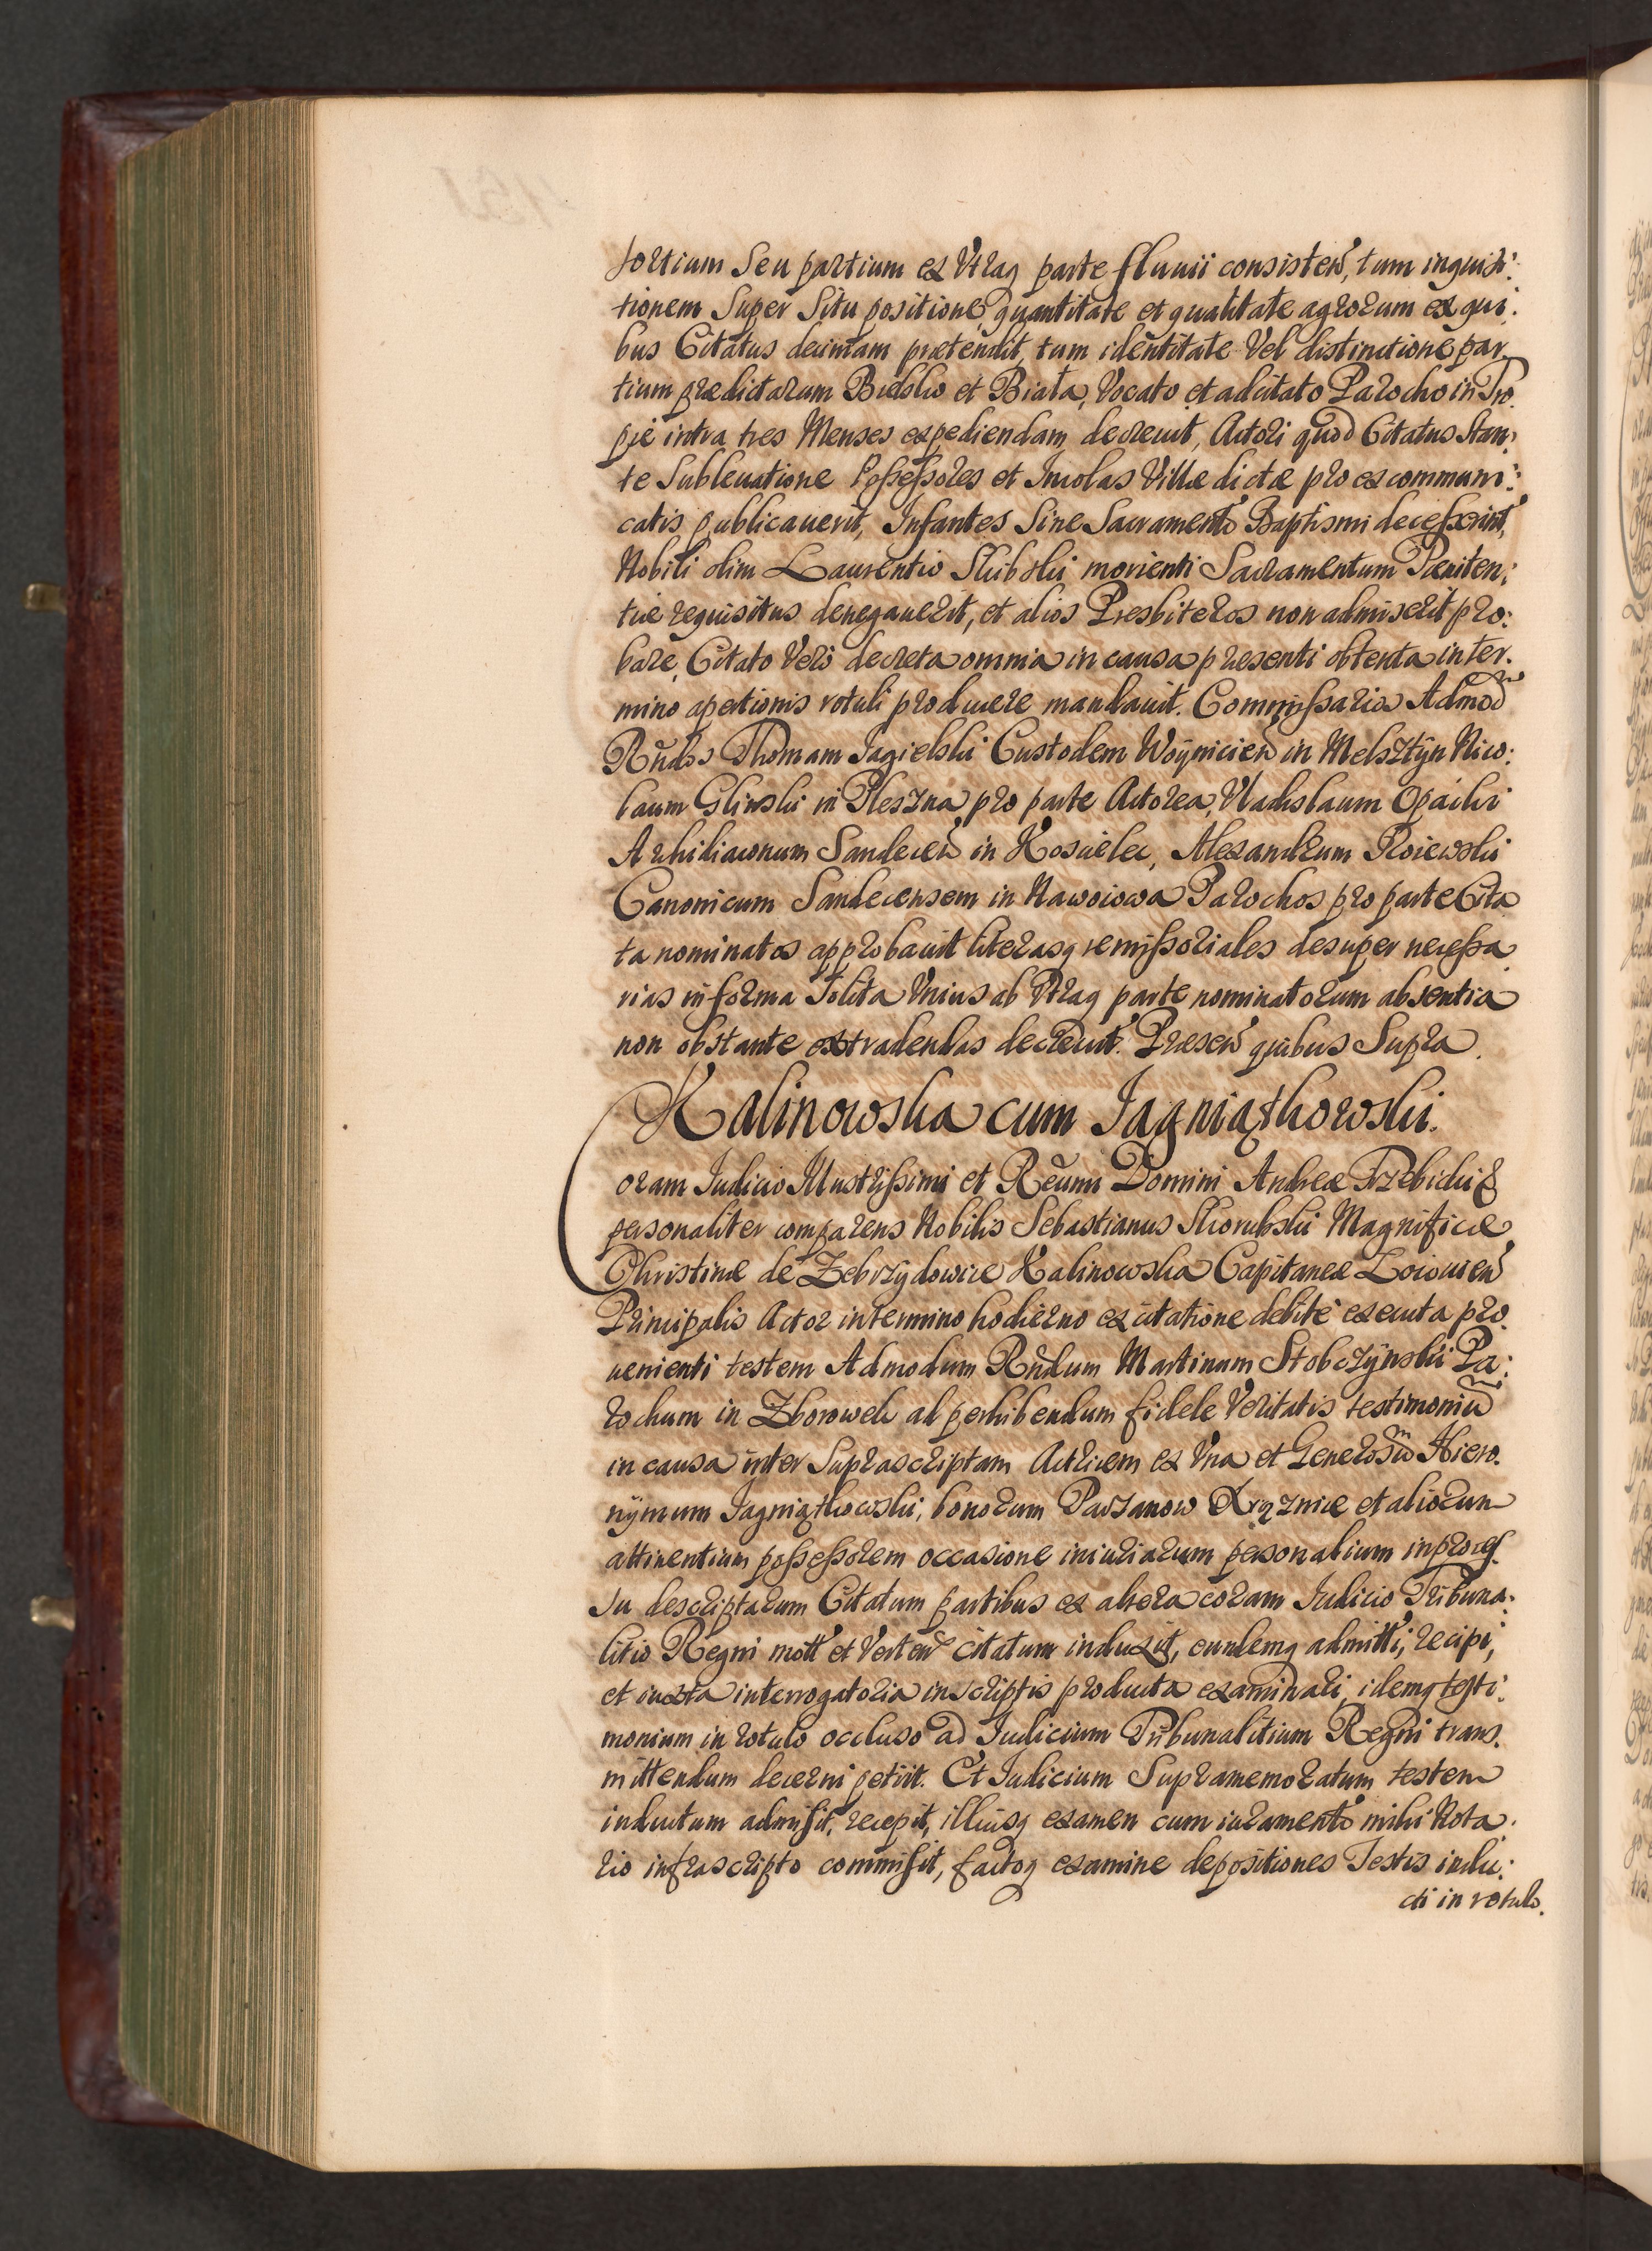 sortium seu partium ex Vtraq parte fluuii consisten, tum inquisi:
tionem super situ positione quantitate et qualitate agrorum ex qui:
bus Citatus decimam prætendit, tum identitate Vel distinctione par
tium prædictarum Biebsko et Biała, Vocato et adcitato Parocho in Tro
pie intra tres Menses expediendam decreuit, Actori quod Citatus stan:
te subleuatione Possessores et Incolas Villæ dictæ pro excommuni:
catis publicauerit, Infantes sine Sacramento Baptismi decesserint,
Nobili olim Laurentio Skibski morienti Sacramentum Pœniten:
tiæ requisitus denegauerit, et alios Presbiteros non admiserit pro:
bare, Citato Vero decreta omnia in causa præsenti obtenta in ter:
mino apertionis rotuli producere mandauit. Commissarios Admod
Rndos Thomam Jagielski Custodem Woÿnicien in Melsztÿn Nico:
laum Glinski in Pleszna pro parte Actorea, Vladislaum Opaicki
Archidiaconum Sandecen in Koscielec, Alexandrum Roiewski
Canonicum Sandecensem in Nawoiowa Parochos pro parte Cita
ta nominatos approbauit literasq remissoriales desuper necessa
rias in forma solita Vnius ab Vtraq parte nominatorum absentia
non obstante extradendas decreuit. Præsen quibus supra.
Kalinowska cum Jagniątkowski.
oram Judicio Illustrissimi et Reumi Domini Andreæ Trzebicki &
personaliter comparens Nobilis Sebastianus Skorubski Magnificæ
Christinæ de Zebrzÿdowice Kalinowska Capitaneæ Loiouien
Principalis Actor in termino hodierno ex citatione debite executa pro
uenienti testem Admodum Rndum Martinum Stobczÿnski Pa:
rochum in Zborowek ad perhibendum fidele Veritatis testimoniu
in causa inter suprascriptam Actricem ex Vna et Generosu Hiero:
nÿmum Jagniątkowski, bonorum Pacanow Xiąznice et aliorum
attinentium possessorem occasione iniuriarum personalium in proces
su descriptarum Citatum partibus ex altera coram Judicio Tribuna:
litio Regni mott et Verten citatum induxit, eundemq admitti, recipi,
et iuxta interrogatoria in scriptis producta examinari, idemq testi:
monium in rotulo occluso ad Judicium Tribunalitium Regni trans:
mittendum decerni petiit. Et Judicium supramemoratum testem
inductum admisit, recepit, illiusq examen cum iuramento mihi Nota:
rio infrascripto commisit, factoq examine depositiones Testis indu:
cti in rotulo.